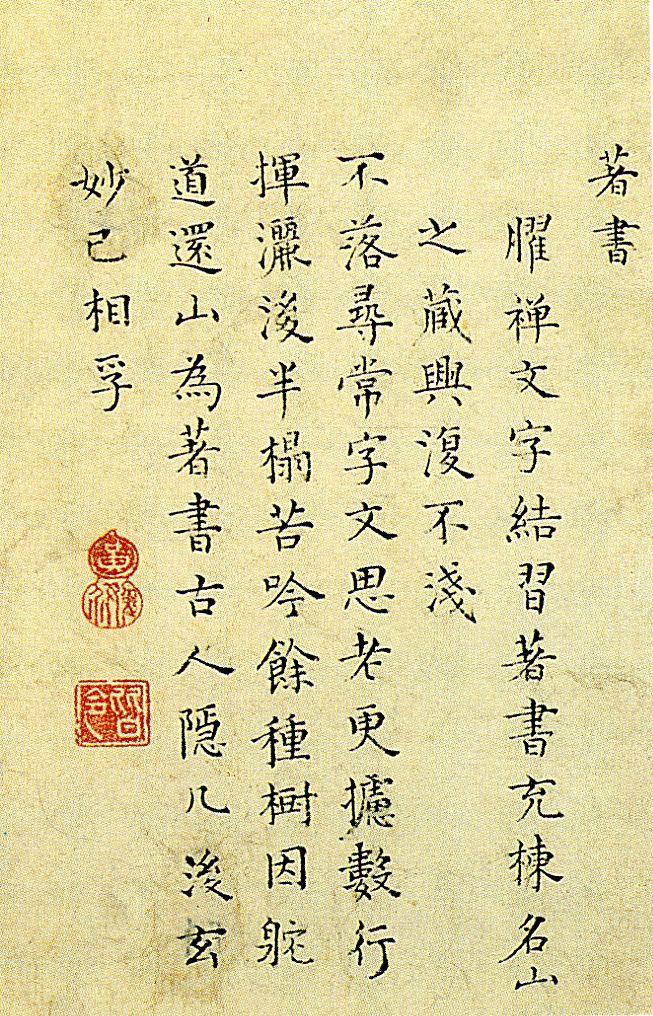 著書
臞禅文字結習著書充棟名山
之蔵興復不淺
不落尋常字文思老更攄數行
揮灑後半榻苦吟餘種樹因舵
道還山為著書古人隠几後玄
妙已相孚